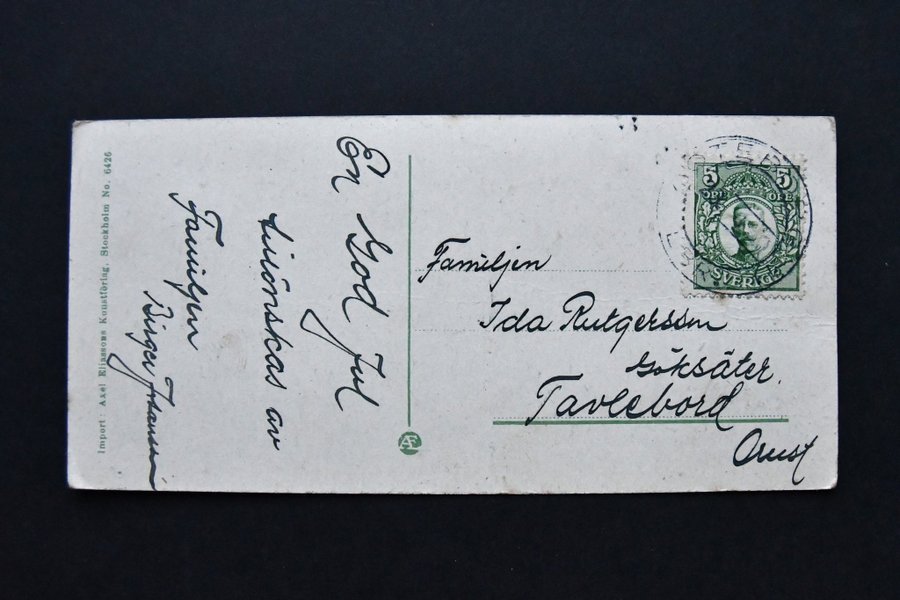 Import: Axel Eliassons Konstförlag. Stockholm No. 6426
En God Jul
tillönskas av
Familjen
Birger
Familjen
Ida Rutgersson
Göksäter.
Tavlebord
Orust
5 5
ÖRE ÖRE
SVERIGE